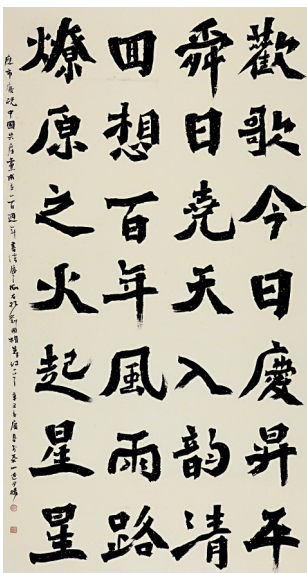 歡歌今日慶昇平
舜日堯天入韵清
回想百年風雨路
燎原之火起星星
應市慶祝中國共產黨成立一百週年書法